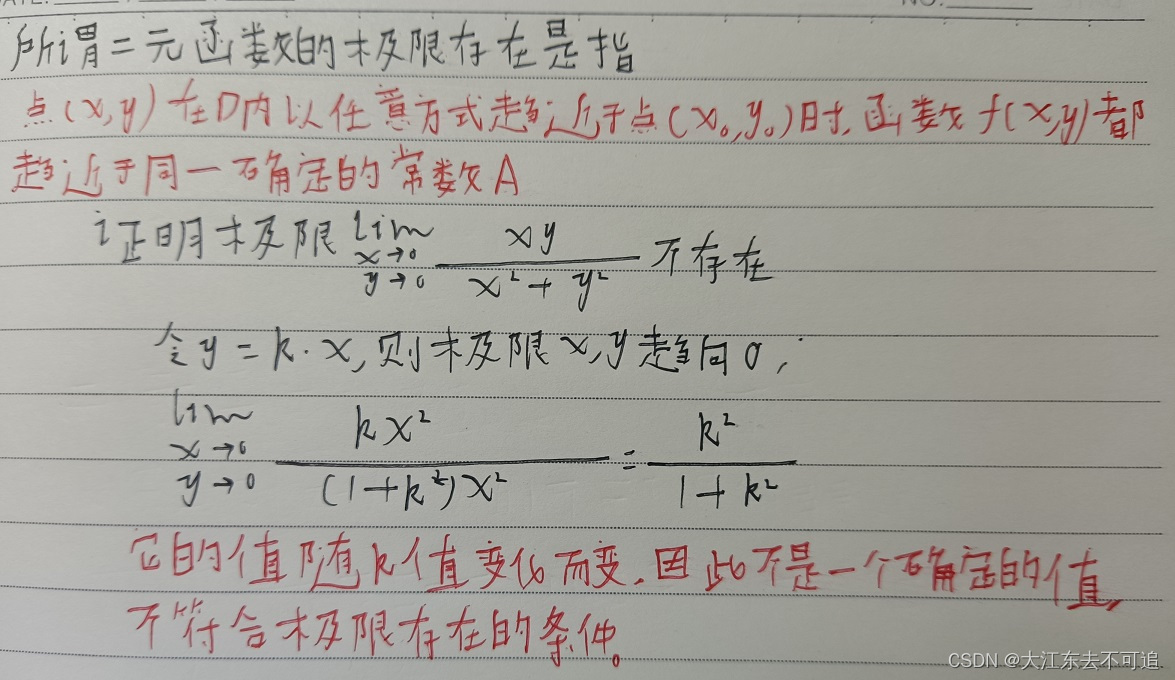 所谓二元函数的极限存在是指
点(x,y)在D内以任意方式趋近于点(x₀,y₀)时,函数f(x,y)都
趋近于同一确定的常数A
证明极限 lim x→0 y→0 xy / x²+y² 不存在
令y=k·x,则极限x,y趋向0,
lim x→0 y→0 kx² / (1+k²)x² = k² / 1+k²
它的值随k值变化而变,因此不是一个确定的值,
不符合极限存在的条件。
CSDN @大江东去不可追